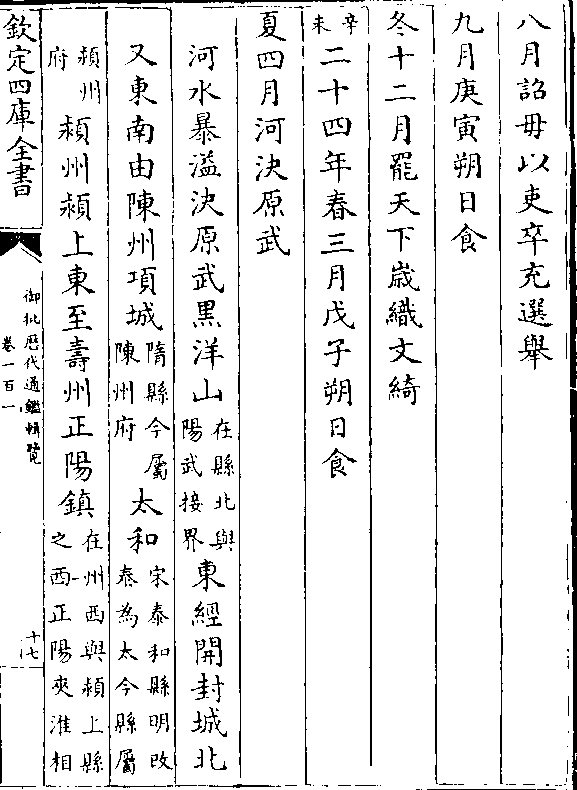 八月詔毋以吏卒充選舉
九月庚寅朔日食
冬十二月罷天下歳織文綺
辛未二十四年春三月戊子朔日食
夏四月河決原武
河水暴溢決原武黒洋山在縣北與陽武接界東經開封城北
又東南由陳州項城隋縣今屬陳州府太和宋泰和縣明改泰為太今縣屬
潁州府潁州潁上東至壽州正陽鎮在州西與潁上縣之西正陽夾淮相
欽定四庫全書
御批歴代通鑑輯覽
卷一百一
十七